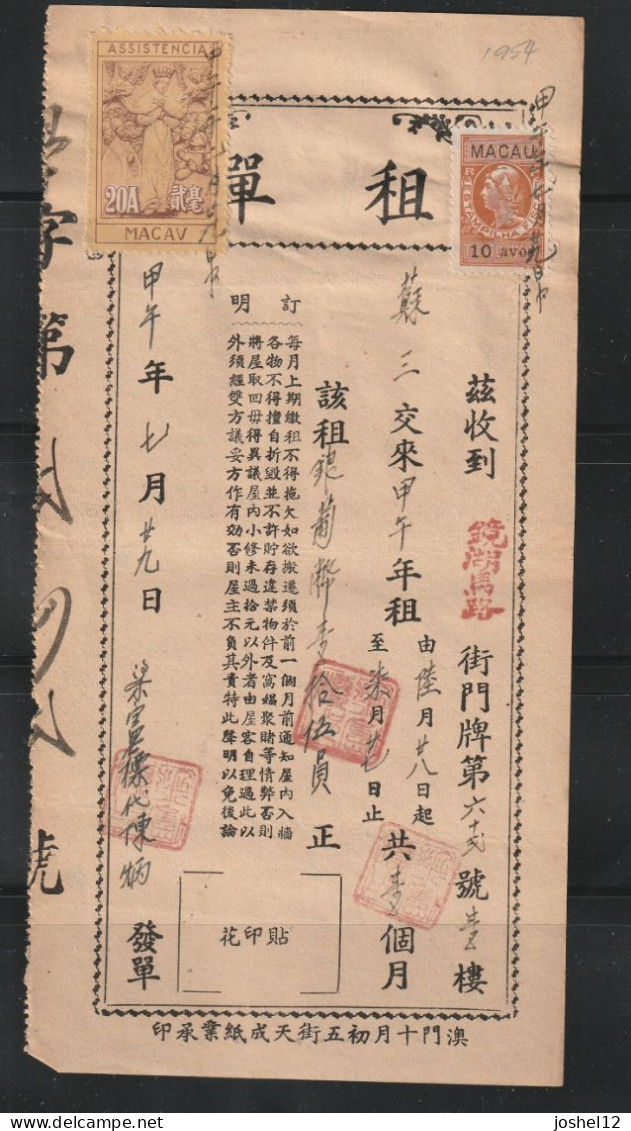 1954
ASSISTENCIA
20A
貳毫
MACAV
MACAU
10 avos
租單
茲收到 鏡湖馬路 街門牌第六十弍號壹樓
蘇三 交來甲午年租 由陸月廿八日起 至柒月廿七日止 共壹個月
該租銀葡幣壹拾伍員正
訂明
每月上期繳租不得拖欠如欲搬遷須於前一個月前通知屋內入牆
各物不得擅自折毀並不許貯存違禁物件及窩娼聚賭等情弊否則
將屋取回毋得異議屋內小修未過拾元以外者由屋客自理過此以
外須經雙方議妥方作有効否則屋主不負其責特此聲明以免後論
貼印花
甲午年七月廿九日
代陳炳 發單
字第
號
澳門十月初五街天成紙業承印
joshel12